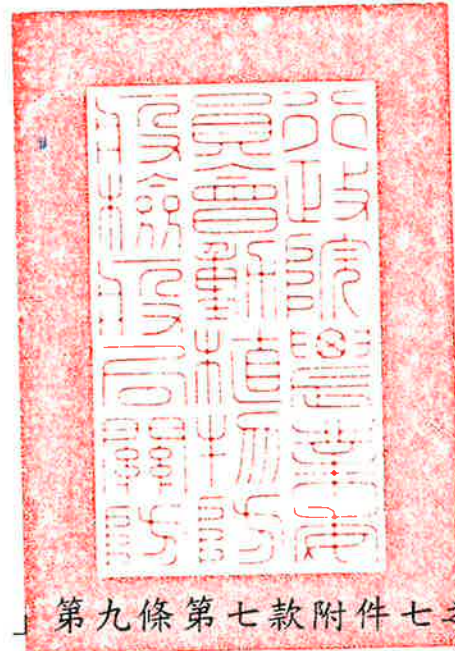 行政院農業委
員會動植物防
疫檢疫局關防
」第九條第七款附件七之